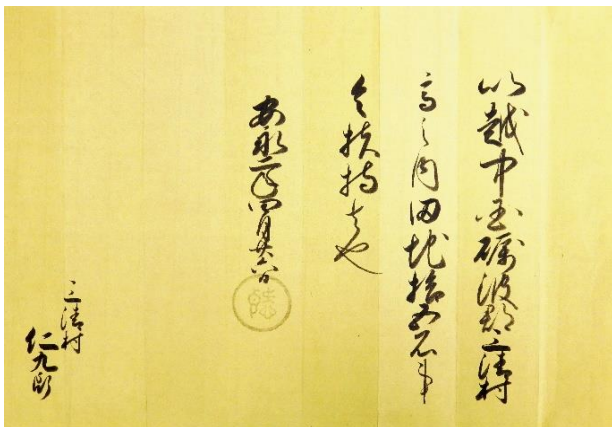 以越中国礪波郡三清村
高之内田地拾五石事
令扶持者也
安永二年四月廿六日
三清村
仁九郎